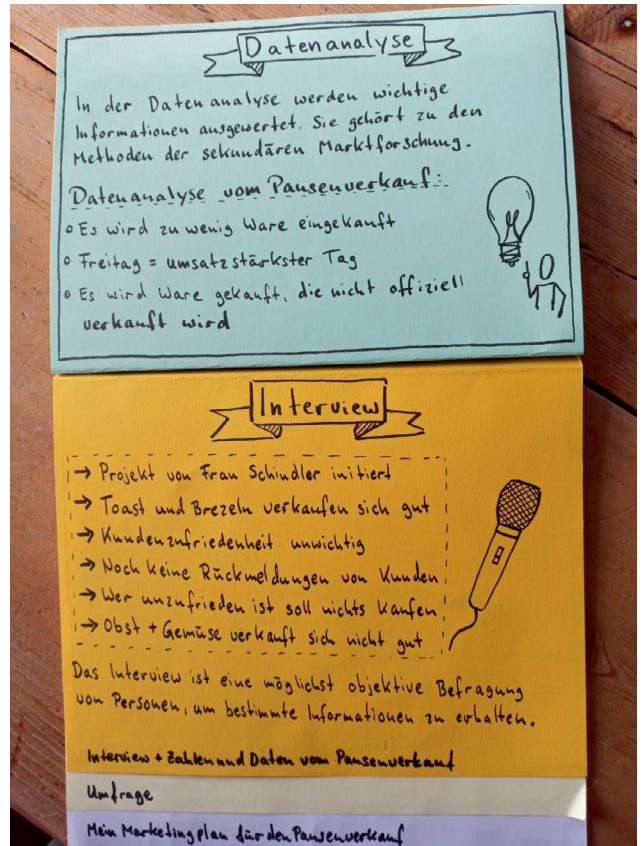 Datenanalyse
In der Datenanalyse werden wichtige
Informationen ausgewertet. Sie gehört zu den
Methoden der sekundären Marktforschung.
Datenanalyse vom Pausenverkauf:
o Es wird zu wenig Ware eingekauft
o Freitag = umsatzstärkster Tag
o Es wird Ware gekauft, die nicht offiziell
verkauft wird
Interview
→ Projekt von Frau Schindler initiert
→ Toast und Brezeln verkaufen sich gut
→ Kundenzufriedenheit unwichtig
→ Noch keine Rückmeldungen von Kunden
→ Wer unzufrieden ist soll nichts kaufen
→ Obst + Gemüse verkauft sich nicht gut
Das Interview ist eine möglichst objektive Befragung
von Personen, um bestimmte Informationen zu erhalten.
Interview + Zahlen und Daten vom Pausenverkauf
Umfrage
Mein Marketingplan für den Pausenverkauf